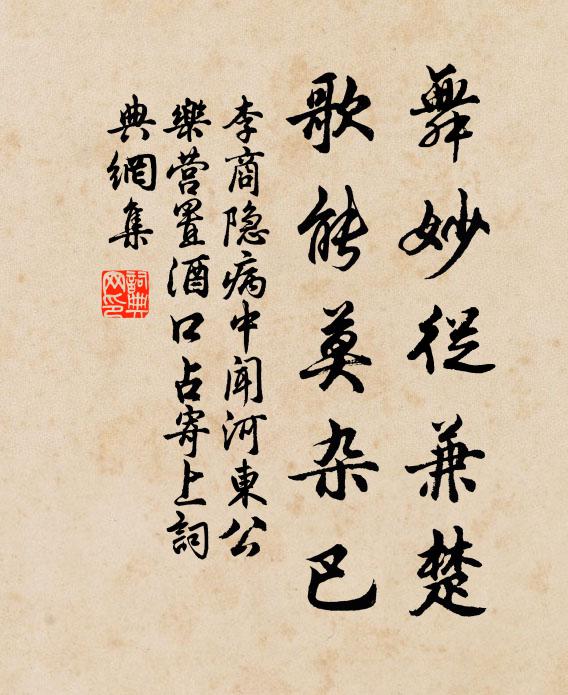 舞妙從兼楚
歌能莫杂巴
李商隐病中闻河東公
樂营置酒口占寄上詞
典網集
詞典
网印